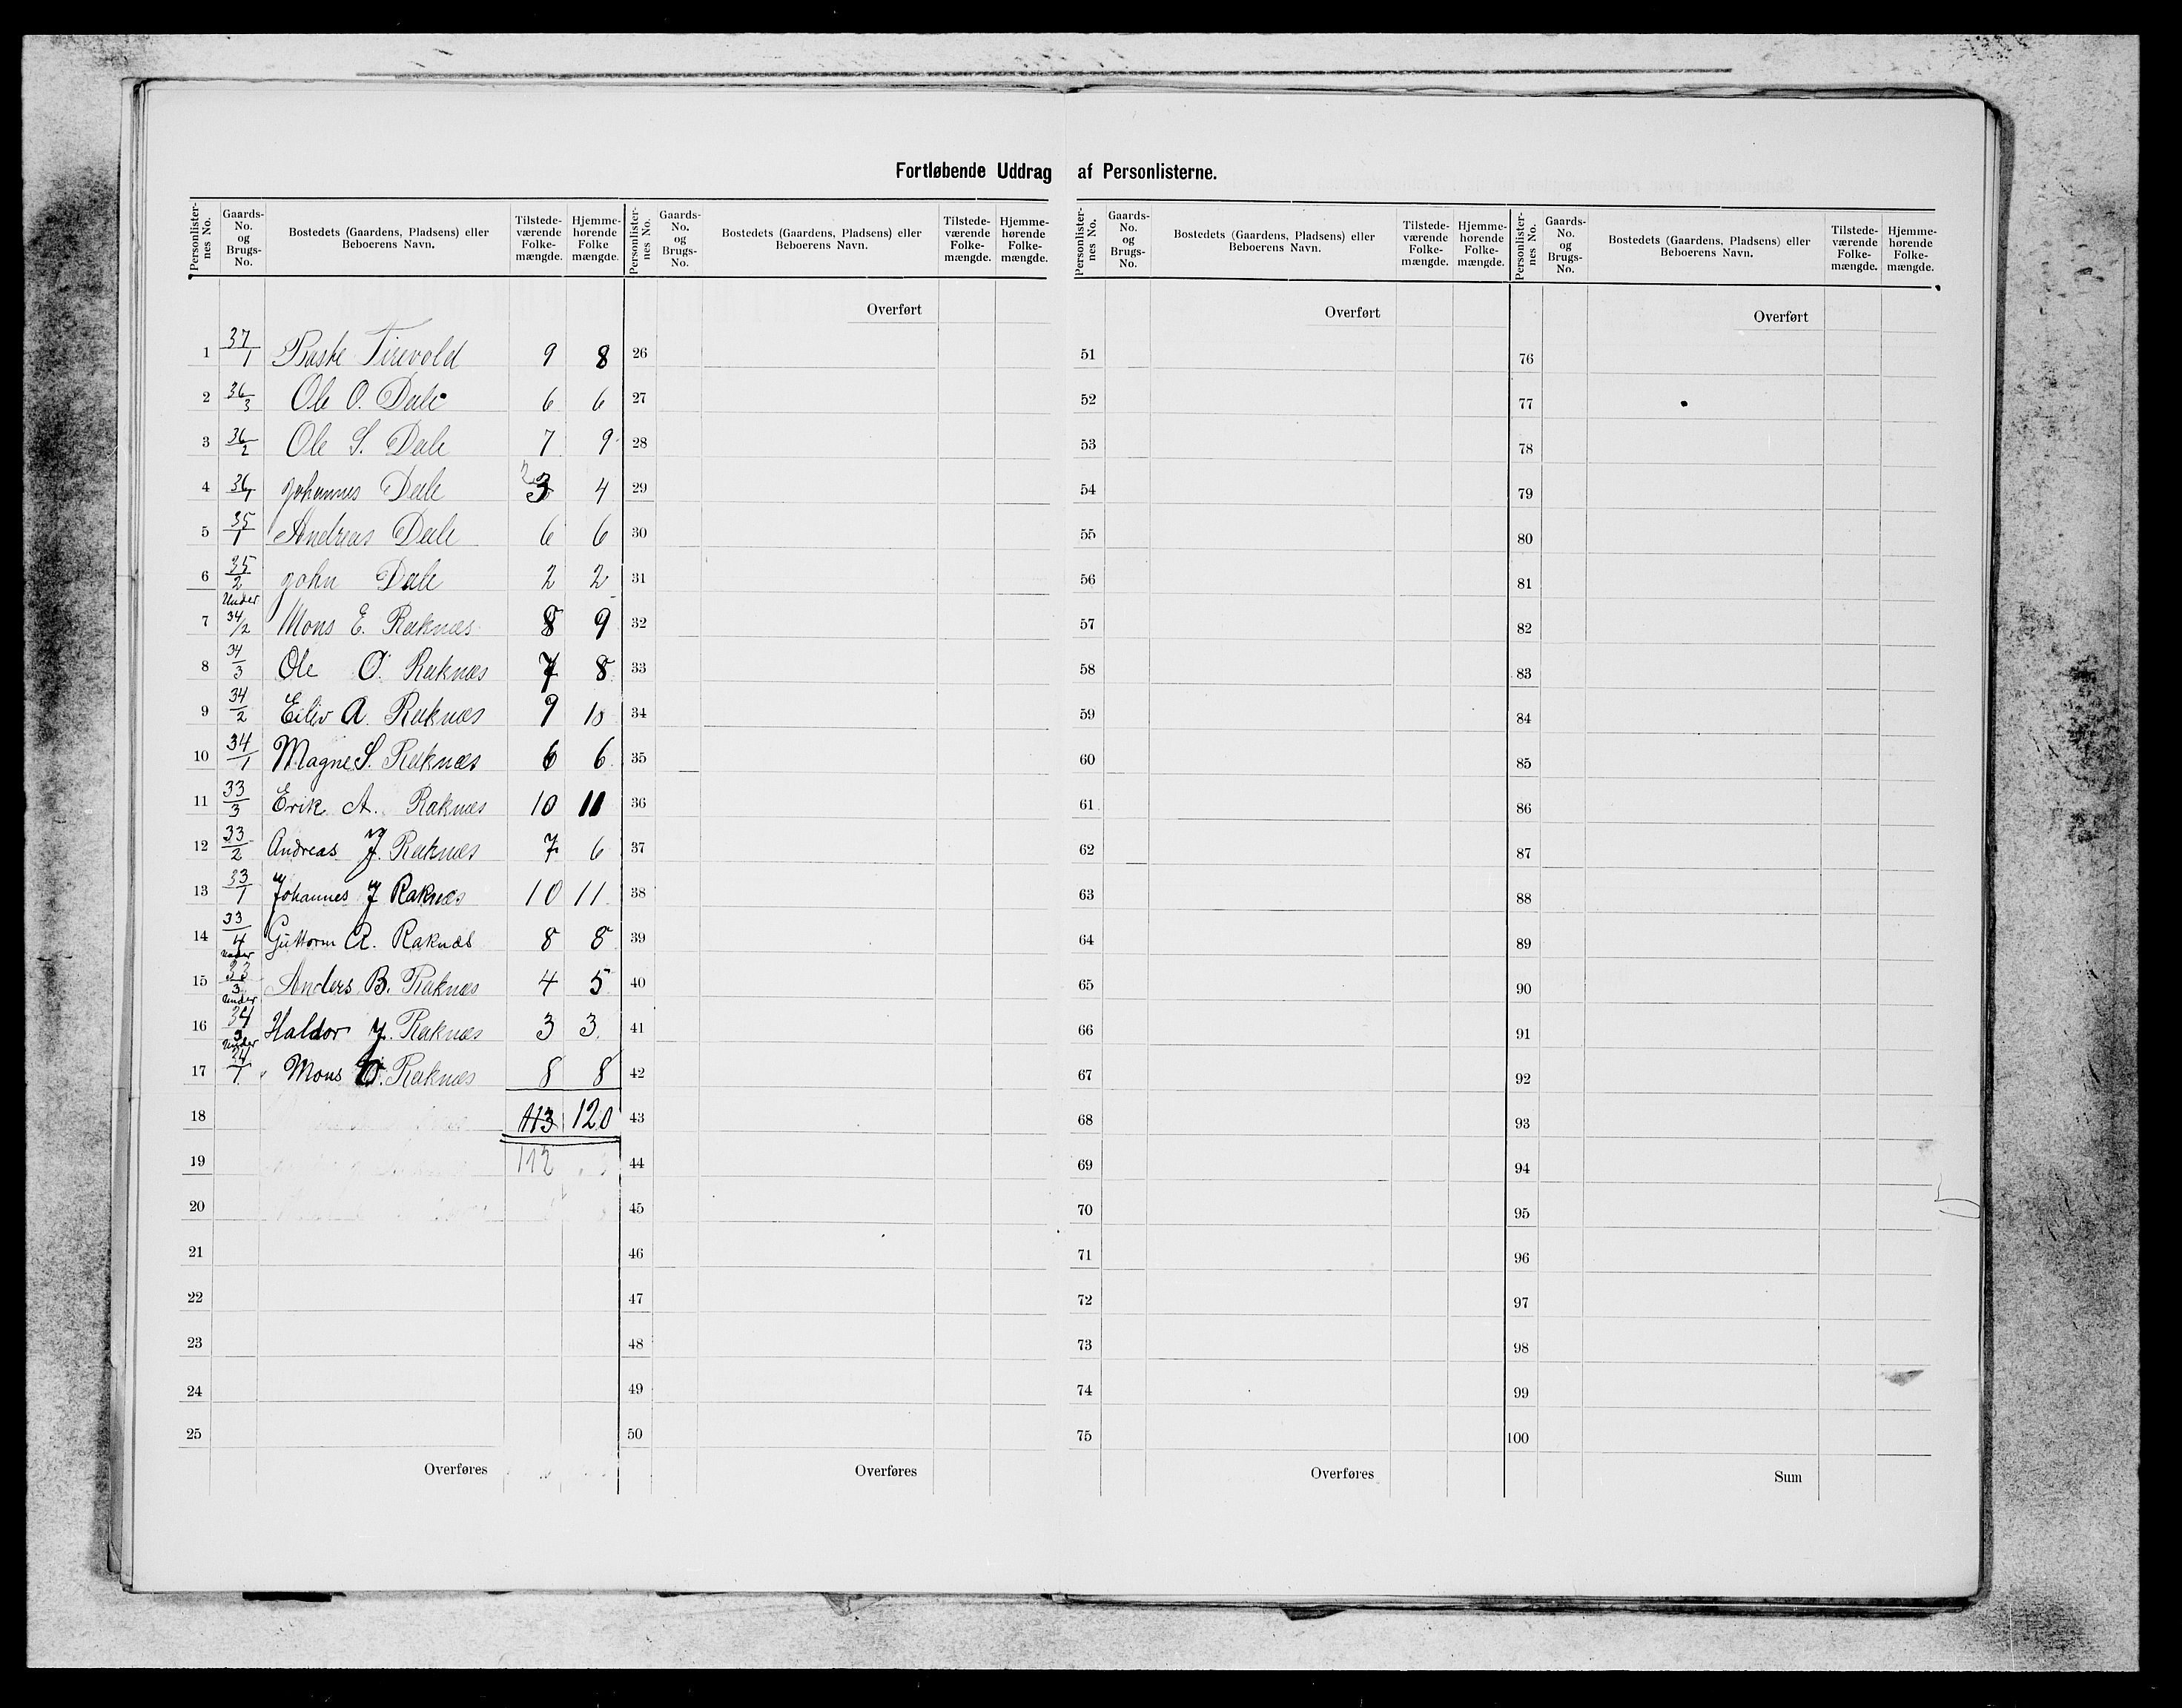 Fortløbende Uddrag af Personlisterne.
Personlisternes No. Gaards-No. og Brugs-No. Bostedets (Gaardens, Pladsens) eller Beboerens Navn. Tilstedeværende Folkemængde. Hjemmehørende Folke mængde.
Personlisternes No. Gaards-No. og Brugs-No. Bostedets (Gaardens, Pladsens) eller Beboerens Navn. Tilstedeværende Folkemængde. Hjemmehørende Folkemængde.
Personlisternes No. Gaards-No. og Brugs-No. Bostedets (Gaardens, Pladsens) eller Beboerens Navn. Tilstedeværende Folkemængde. Hjemmehørende Folkemængde.
Personlisternes No. Gaards-No. og Brugs-No. Bostedets (Gaardens, Pladsens) eller Beboerens Navn. Tilstedeværende Folkemængde. Hjemmehørende Folkemængde.
Overført Overført Overført
1 37/1 Tirevold 9 8 26 51 76
2 36/3 Ole O. Dale 6 6 27 52 77
3 36/2 Ole S. Dale 7 9 28 53 78
4 36/1 Johannes Dale 3 4 29 54 79
5 35/1 Andreas Dale 6 6 30 55 80
6 35/2 John Dale 2 2 31 56 81
7 Under 34/2 Mons E. Raknæs 8 9 32 57 82
8 34/3 Ole O. Raknæs 7 8 33 58 83
9 34/2 Eiliv A. Raknæs 9 10 34 59 84
10 34/1 Magne S. Raknæs 6 6 35 60 85
11 33/3 Erik A. Raknæs 10 11 36 61 86
12 33/2 Andreas J. Raknæs 7 6 37 62 87
13 33/1 Johannes J Raknæs 10 11 38 63 88
14 33/4 Guttorm A. Raknæs 8 8 39 64 89
15 Under 33/3 Anders B. Raknæs 4 5 40 65 90
16 Under 34/3 Haldor J. Raknæs 3 3 41 66 91
17 Under 34/1 Mons O. Raknæs 8 8 42 67 92
18 113 120 43 68 93
19 112 44 69 94
20 45 70 95
21 46 71 96
22 47 72 97
23 48 73 98
24 49 74 99
25 50 75 100
Overføres Overføres Overføres Sum